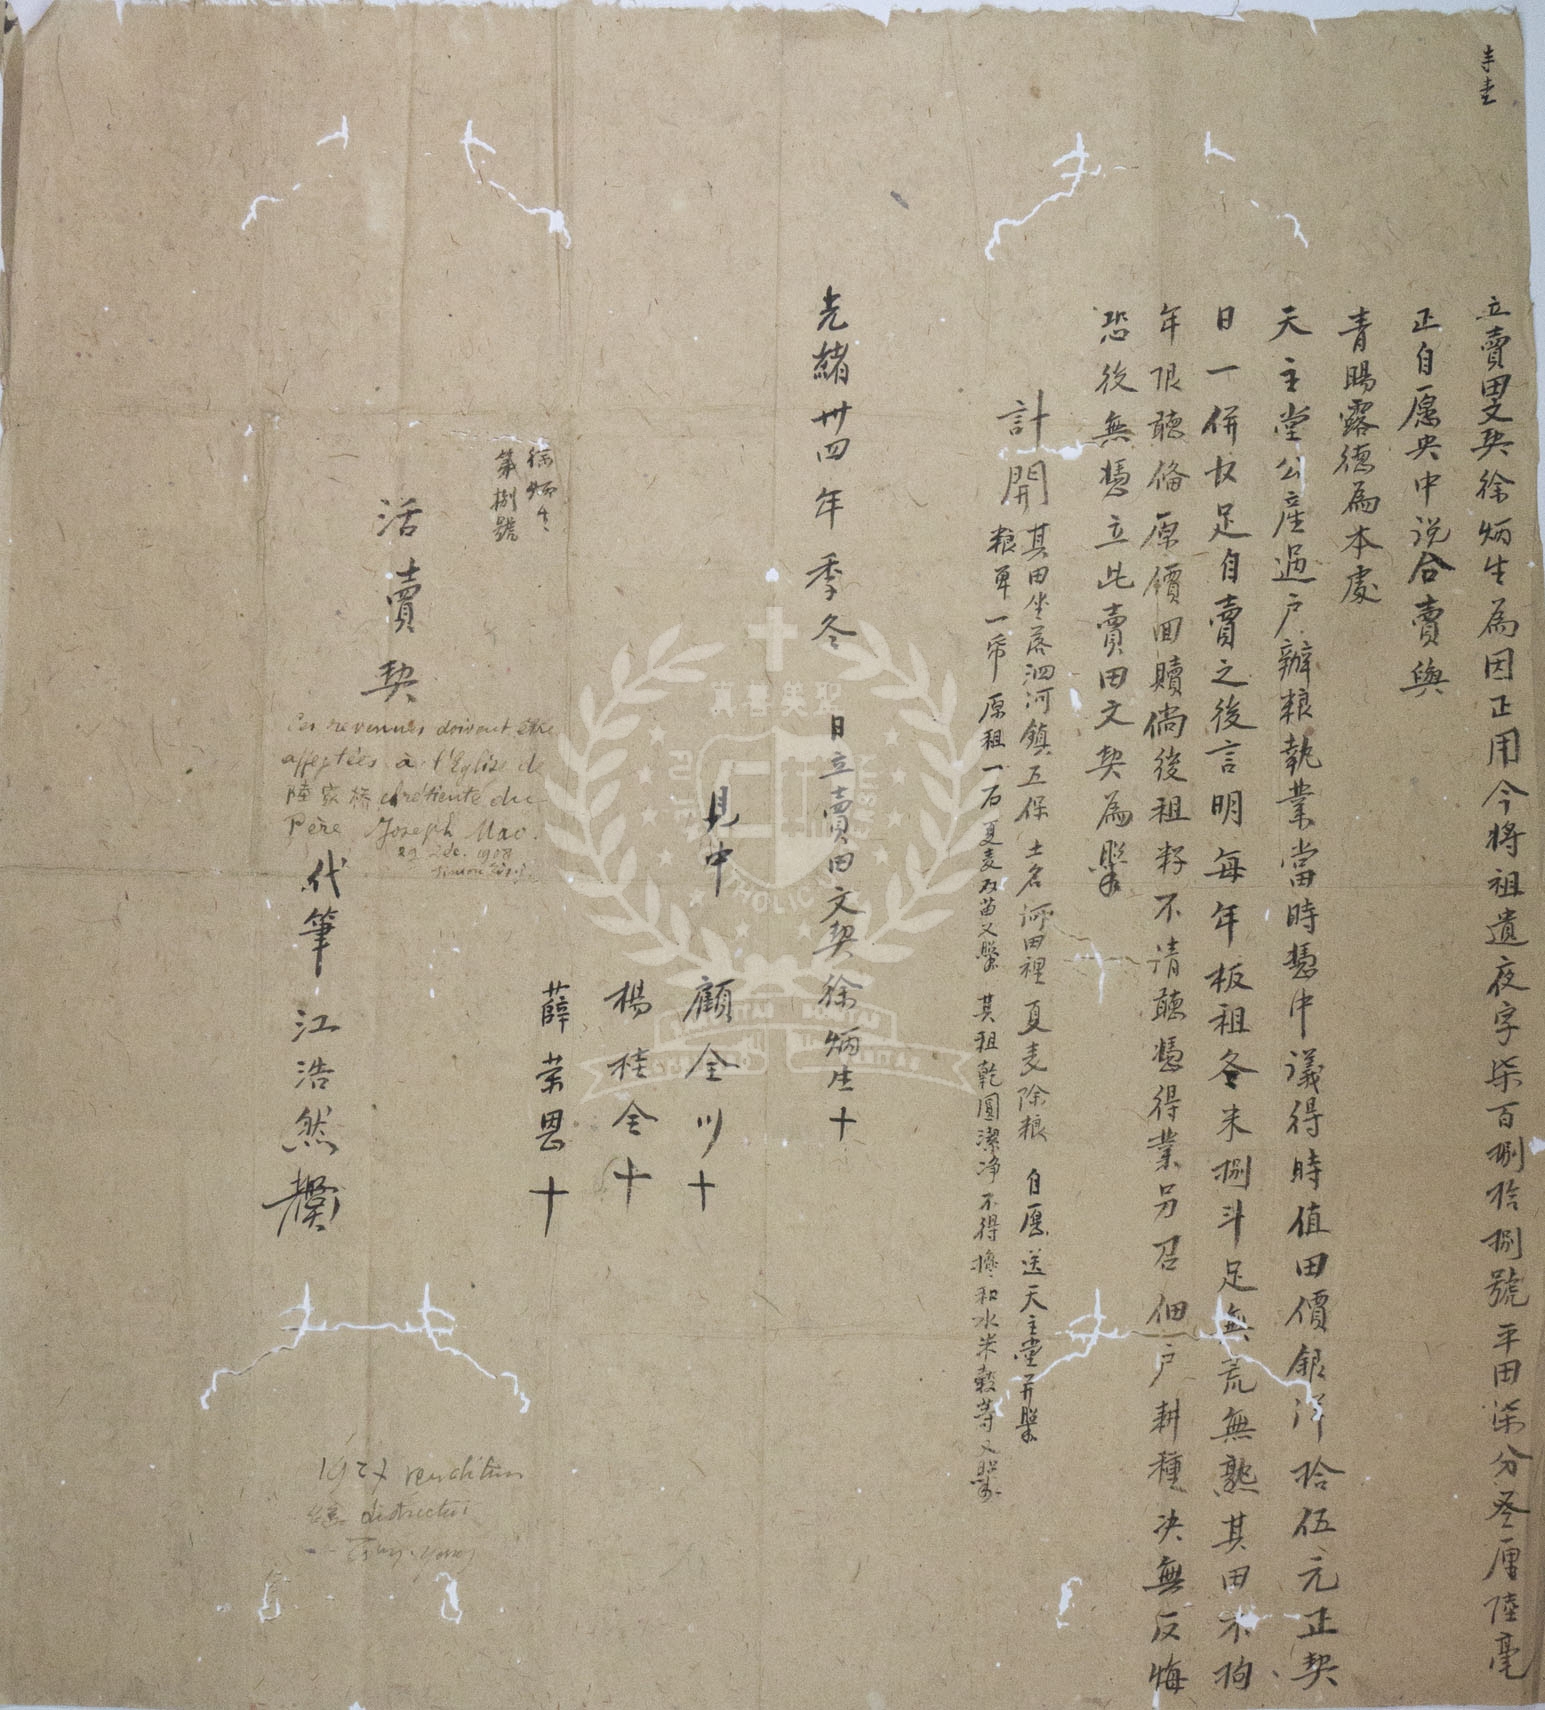 立賣田文契徐炳生為因正用今將祖遺夜字柒百捌拾捌號平田柒分叁厘陸毫
正自愿央中说合賣與
青賜露德為本處
天主堂公産過户辦粮執業當時憑中議得時值田價銀洋拾伍元正契
日一併收足自賣之後言明每年板租冬米捌斗足無荒無熟其田不拘
年限聽俻原價回贖倘後租籽不清聽憑得業另召佃户耕種决無反悔
恐後無憑立此賣田文契為照
計開
其田坐落泗河鎮五保 土名河田裡 夏麦除粮 自愿送天主堂并照
粮單一帋 原租一石 夏麦及苗又照 其租乾圓潔净不得攙和水米穀等又照
光緒卅四年季冬 日立賣田文契徐炳生十
見中
顧全川十
楊桂全十
薛荣恩十
徐炳生
第捌號
活賣契
Ces revenues doivent être
affectées à l'Eglise de
陸家桥 chrétienté du
Père Joseph Mao.
29 Dec. 1908
Simon
代筆 江浩然
1927 venditum
districtui